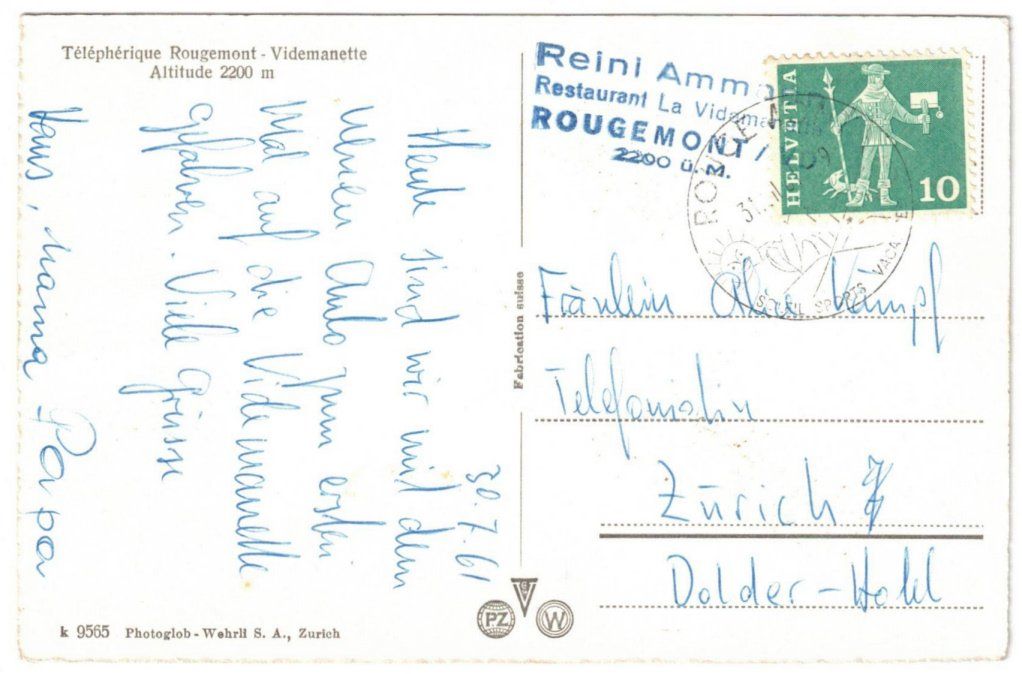 Téléphérique Rougemont - Videmanette
Altitude 2200 m
30.7.61
Heute sind wir mit dem
neuen Auto zum ersten
Mal auf die Videmanette
gefahren. Viele Grüsse
Hans, Mama Papa
k 9565 Photoglob - Wehrli S. A., Zurich
Fabrication suisse
PZ
W
Reini Amm
Restaurant La Videmanette
ROUGEMONT /
2200 ü. M.
ROUGEMONT
SOLEIL SPORTS VACA
HELVETIA
10
Fräulein Kämpf
Telefonistin
Zürich 7
Dolder-Hotel